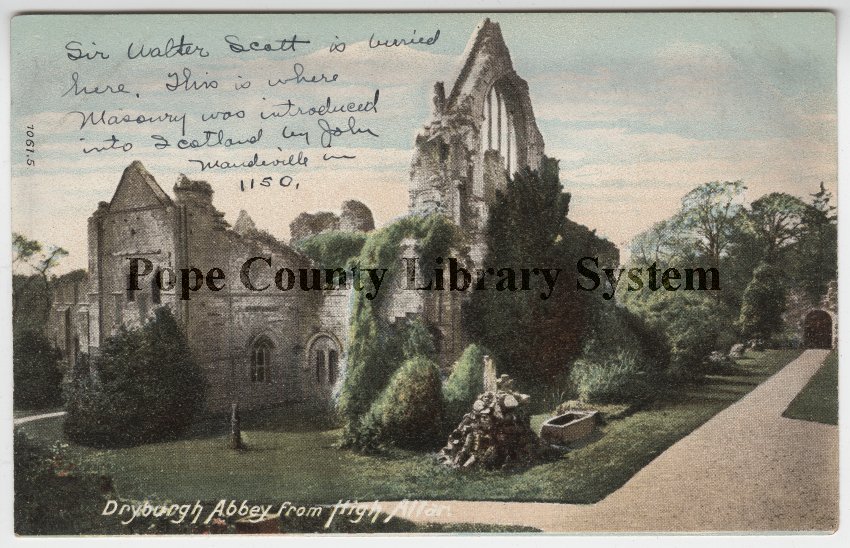 Sir Walter Scott is buried
here. This is where
Masonry was introduced
into Scotland by John
Mandeville in
1150.
1061.5.
Pope County Library System
Dryburgh Abbey from High Altar.